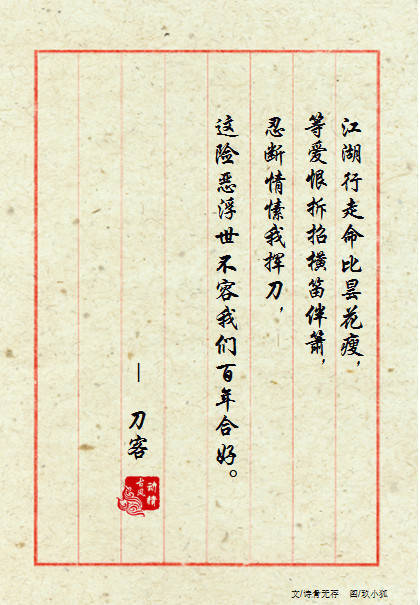 江湖行走命比昙花瘦，
等爱恨拆招横笛伴箫，
忍断情愫我挥刀，
这险恶浮世不容我们百年合好。
— 刀客
动情
古风
文/诗骨无存 图/玖小狐